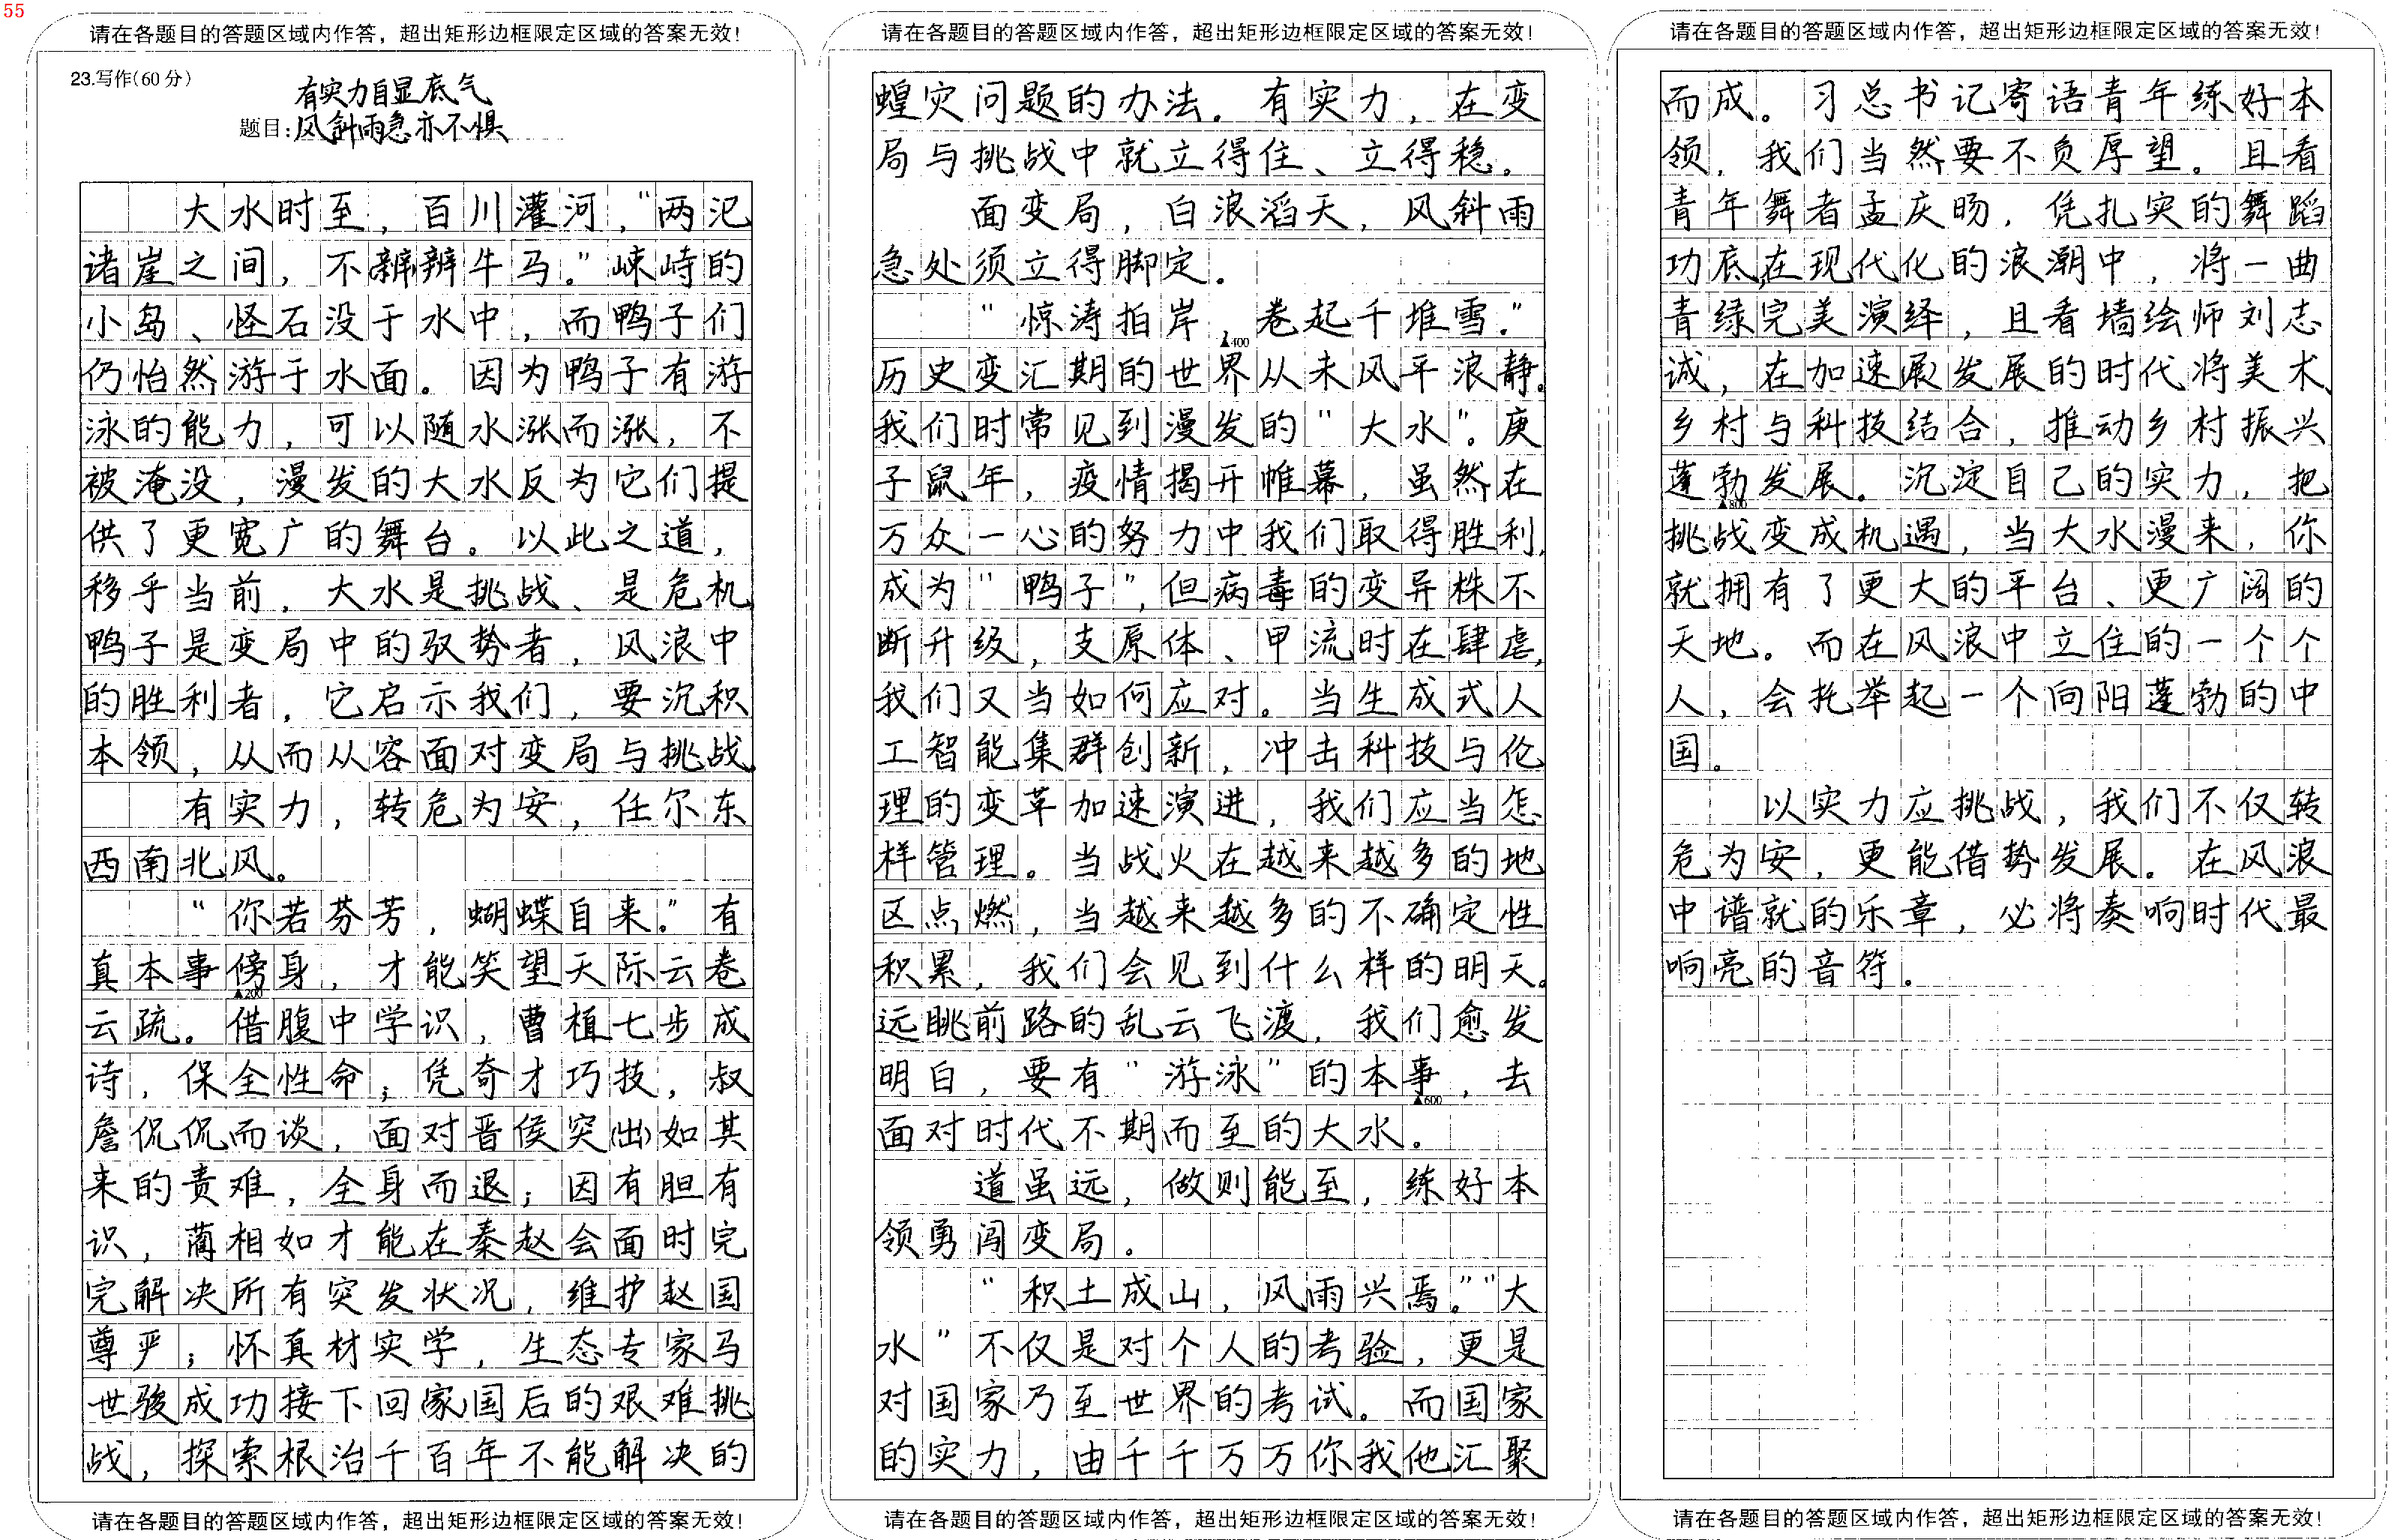 55
请在各题目的答题区域内作答，超出矩形边框限定区域的答案无效！
23.写作(60分)
有实力自显底气
题目：风斜雨急亦不惧
大水时至，百川灌河，“两汜
诸崖之间，不辨牛马。”崃峙的
小岛、怪石没于水中，而鸭子们
仍怡然游于水面。因为鸭子有游
泳的能力，可以随水涨而涨，不
被淹没，漫发的大水反为它们提
供了更宽广的舞台。以此之道，
移乎当前，大水是挑战、是危机，
鸭子是变局中的驭势者，风浪中
的胜利者，它启示我们，要沉积
本领，从而从容面对变局与挑战。
有实力，转危为安，任尔东
西南北风。
“你若芬芳，蝴蝶自来。”有
真本事傍身，才能笑望天际云卷
▲200
云疏。借腹中学识，曹植七步成
诗，保全性命；凭奇才巧技，叔
詹侃侃而谈，面对晋侯突(出)如其
来的责难，全身而退；因有胆有
识，蔺相如才能在秦赵会面时完
完解决所有突发状况，维护赵国
尊严；怀真材实学，生态专家马
世骏成功接下回国后的艰难挑
战，探索根治千百年不能解决的
请在各题目的答题区域内作答，超出矩形边框限定区域的答案无效！
请在各题目的答题区域内作答，超出矩形边框限定区域的答案无效！
蝗灾问题的办法。有实力，在变
局与挑战中就立得住、立得稳。
面变局，白浪滔天，风斜雨
急处须立得脚定。
“惊涛拍岸，卷起千堆雪。”
▲400
历史变汇期的世界从未风平浪静。
我们时常见到漫发的“大水”。庚
子鼠年，疫情揭开帷幕，虽然在
万众一心的努力中我们取得胜利，
成为“鸭子”，但病毒的变异株不
断升级，支原体、甲流时在肆虐，
我们又当如何应对。当生成式人
工智能集群创新，冲击科技与伦
理的变革加速演进，我们应当怎
样管理。当战火在越来越多的地
区点燃，当越来越多的不确定性
积累，我们会见到什么样的明天。
远眺前路的乱云飞渡，我们愈发
明白，要有“游泳”的本事，去
▲600
面对时代不期而至的大水。
道虽远，做则能至，练好本
领勇闯变局。
“积土成山，风雨兴焉。”“大
水”不仅是对个人的考验，更是
对国家乃至世界的考试。而国家
的实力，由千千万万你我他汇聚
请在各题目的答题区域内作答，超出矩形边框限定区域的答案无效！
请在各题目的答题区域内作答，超出矩形边框限定区域的答案无效！
而成。习总书记寄语青年练好本
领，我们当然要不负厚望。且看
青年舞者孟庆旸，凭扎实的舞蹈
功底，在现代化的浪潮中，将一曲
青绿完美演绎，且看墙绘师刘志
诚，在加速发展的时代将美术、
乡村与科技结合，推动乡村振兴
蓬勃发展。沉淀自己的实力，把
▲800
挑战变成机遇，当大水漫来，你
就拥有了更大的平台、更广阔的
天地。而在风浪中立住的一个个
人，会托举起一个向阳蓬勃的中
国。
以实力应挑战，我们不仅转
危为安，更能借势发展。在风浪
中谱就的乐章，必将奏响时代最
响亮的音符。
请在各题目的答题区域内作答，超出矩形边框限定区域的答案无效！